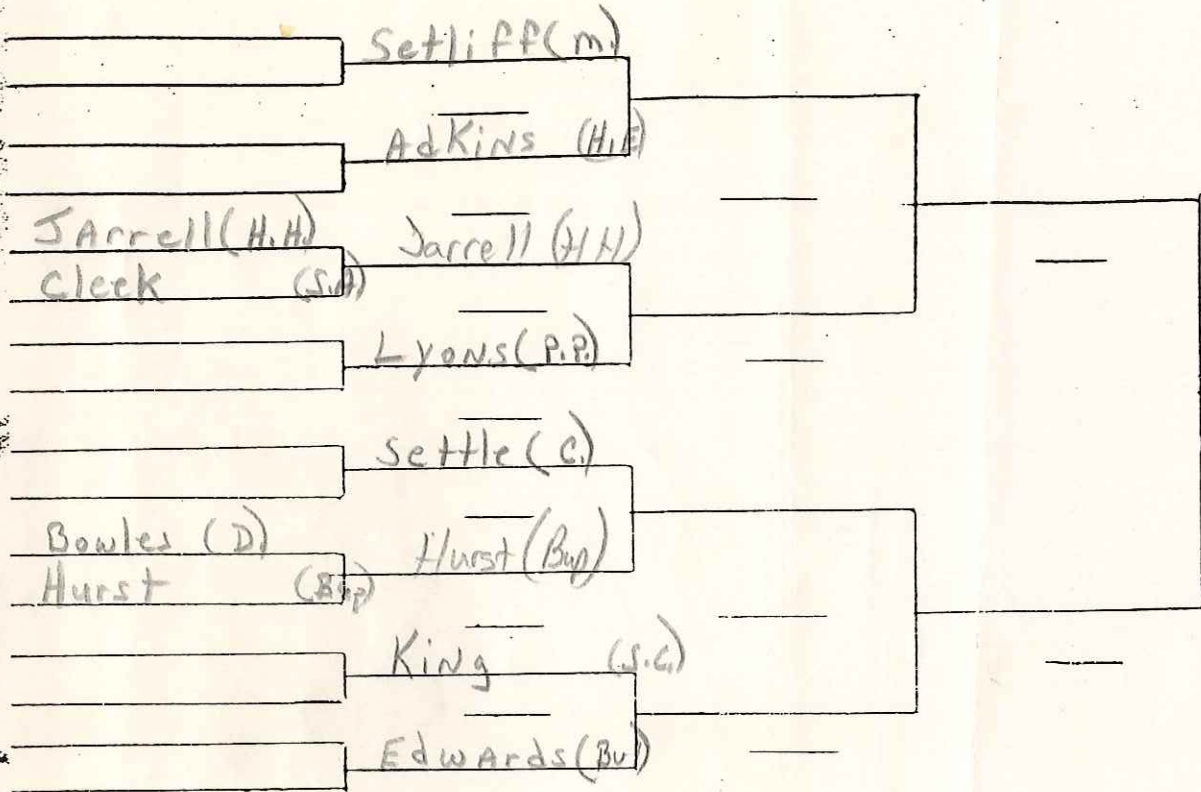 Setliff (m.)
AdKins (H.E)
JArrell (H.H.)
Jarrell (HH)
Cleek (S.A)
Lyons (P.P.)
Settle (C.)
Bowles (D)
Hurst (Bup)
Hurst (Bup)
King (S.C.)
EdwArds (Bu)